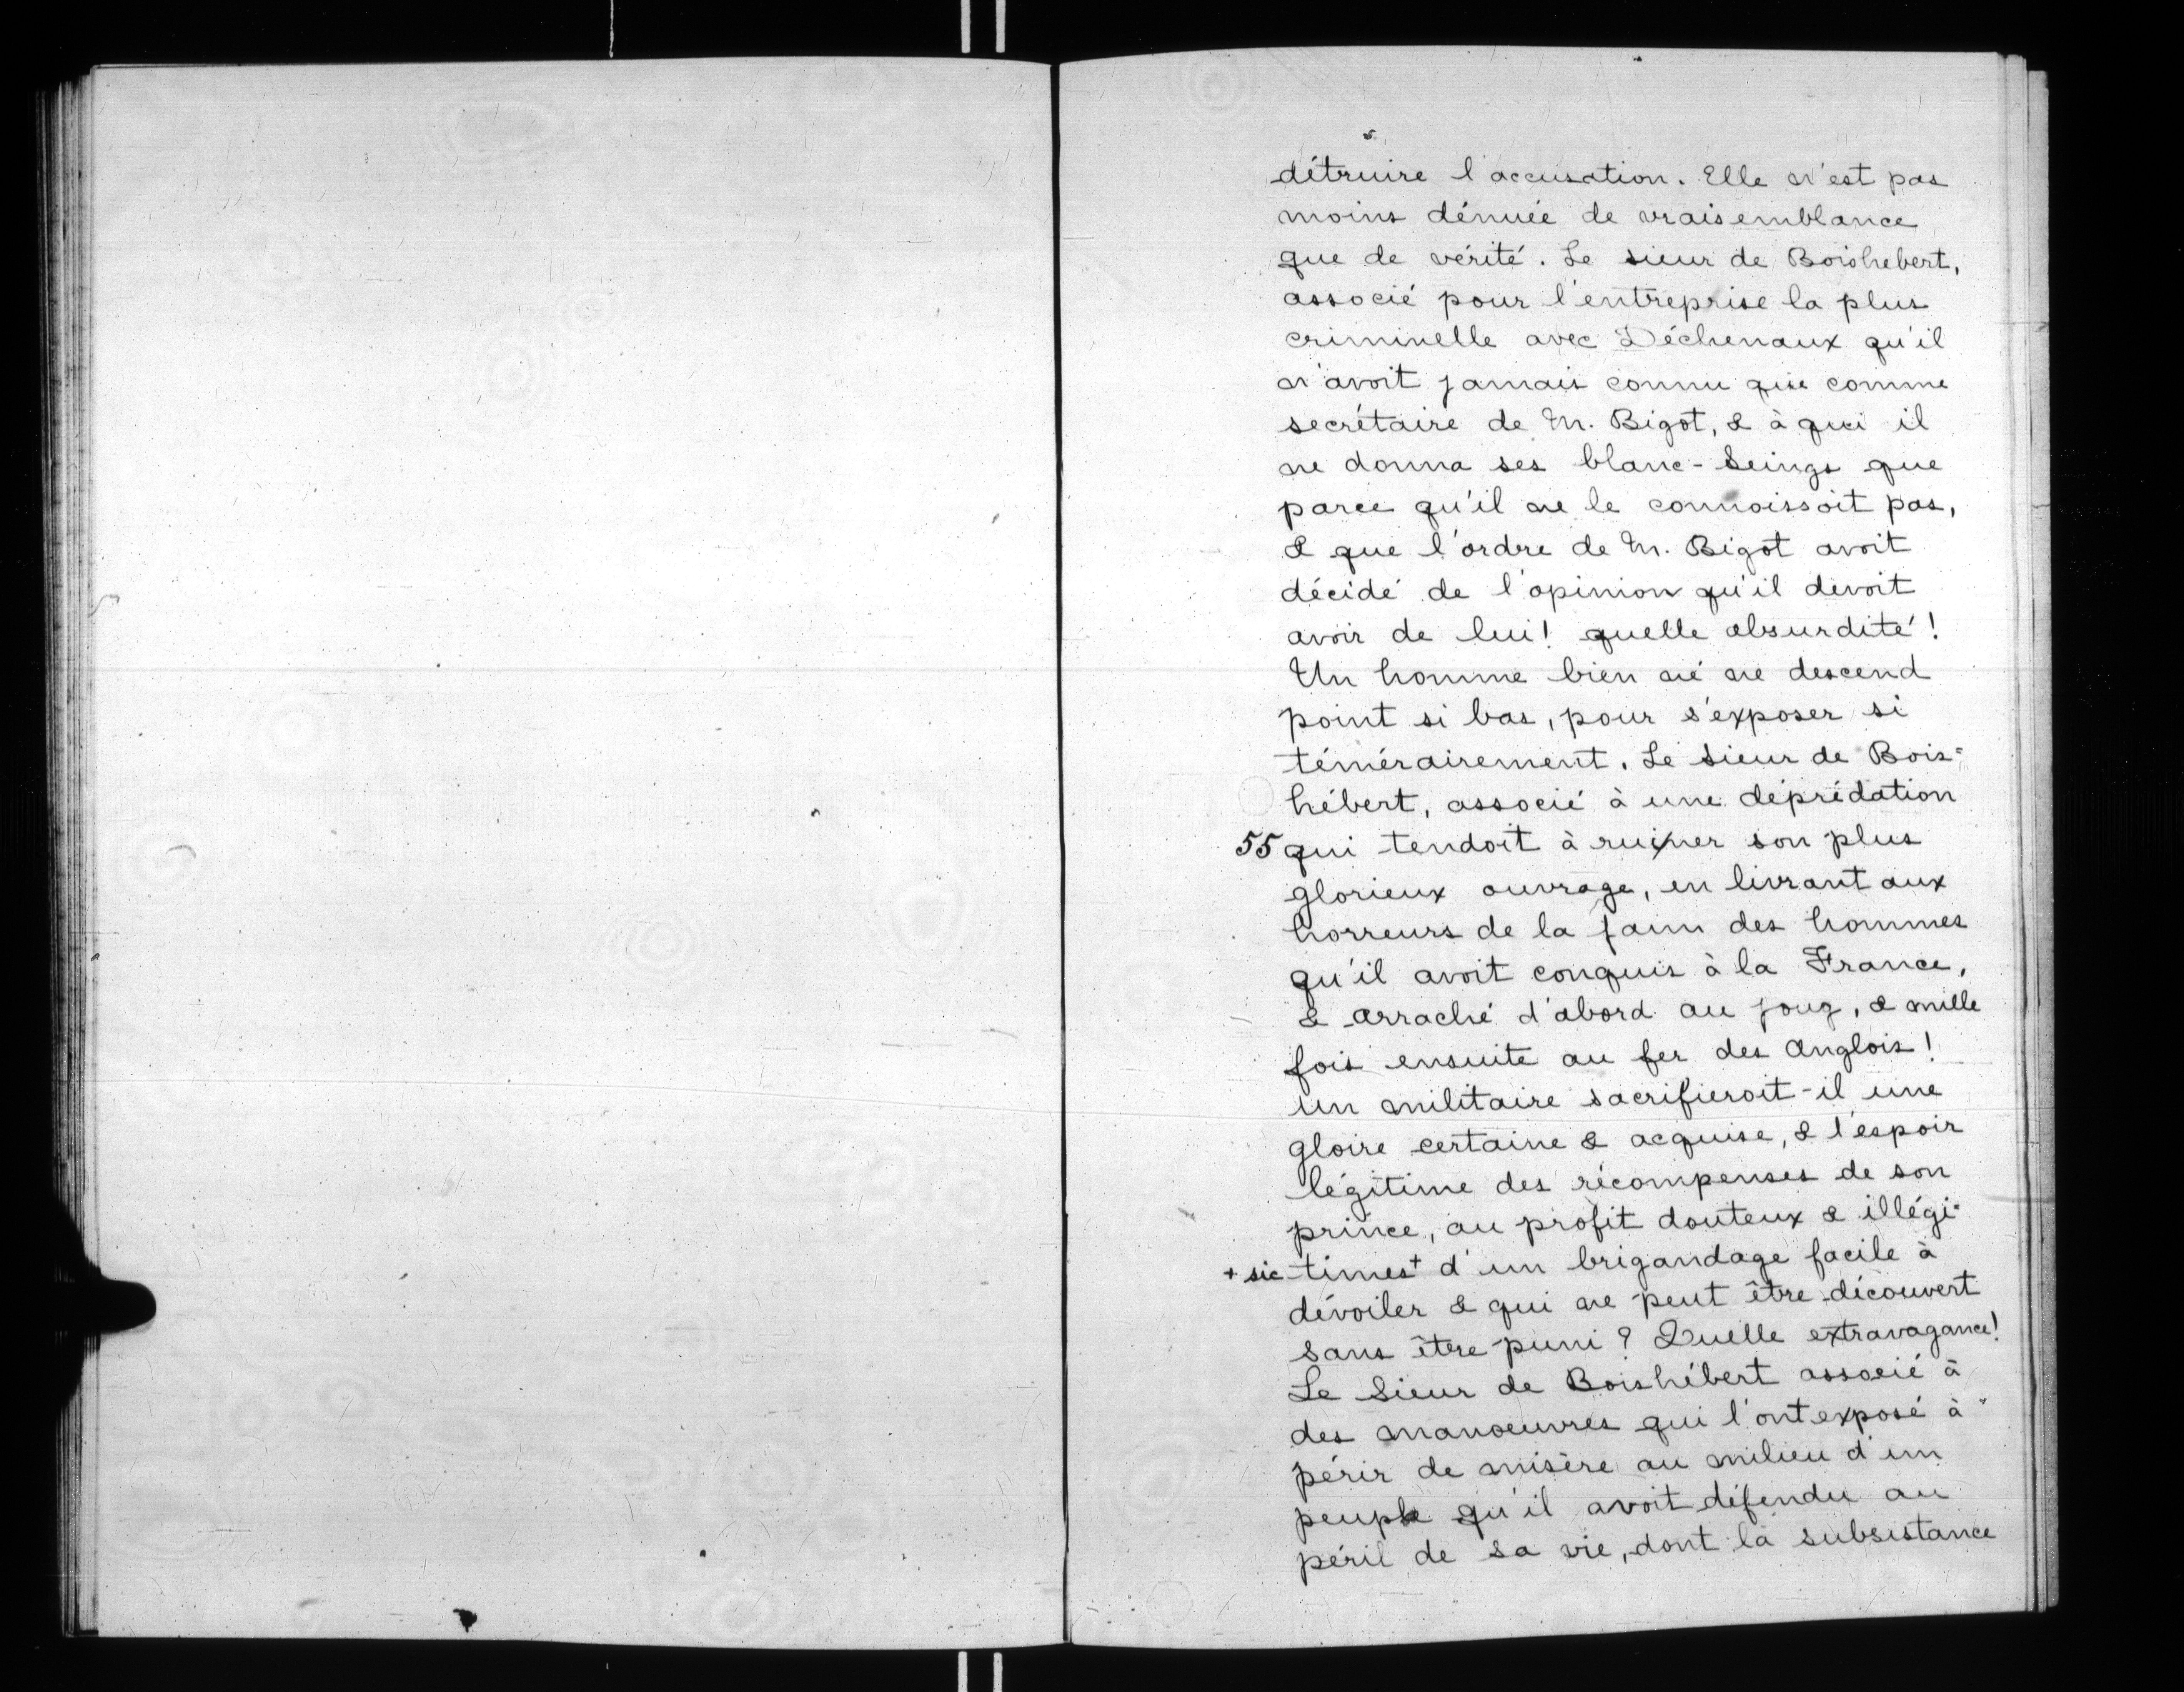 détruire l'accusation. Elle n'est pas
moins dénuée de vraisemblance
que de vérité. Le sieur de Boishebert,
associé pour l'entreprise la plus
criminelle avec Déchenaux qu'il
n'avoit jamais connu que comme
secrétaire de M. Bigot, & à qui il
ne donna ses blanc-seings que
parce qu'il ne le connoissoit pas,
& que l'ordre de M. Bigot avoit
décidé de l'opinion qu'il devoit
avoir de lui! quelle absurdité!
Un homme bien né ne descend
point si bas, pour s'exposer si
témérairement. Le sieur de Bois=
hébert, associé à une déprédation
55 qui tendoit à ruiner son plus
glorieux ouvrage, en livrant aux
horreurs de la faim des hommes
qu'il avoit conquis à la France,
& arraché d'abord au joug, & mille
fois ensuite au fer des Anglois!
un militaire sacrifieroit-il une
gloire certaine & acquise, & l'espoir
légitime des récompenses de son
prince, au profit douteux & illégi=
+ sic times+ d'un brigandage facile à
dévoiler & qui ne peut être découvert
sans être puni? Quelle extravagance!
Le Sieur de Boishébert associé à
des manoeuvres qui l'ont exposé à
périr de misère au milieu d'un
peuple qu'il avoit défendu au
péril de sa vie, dont la subsistance